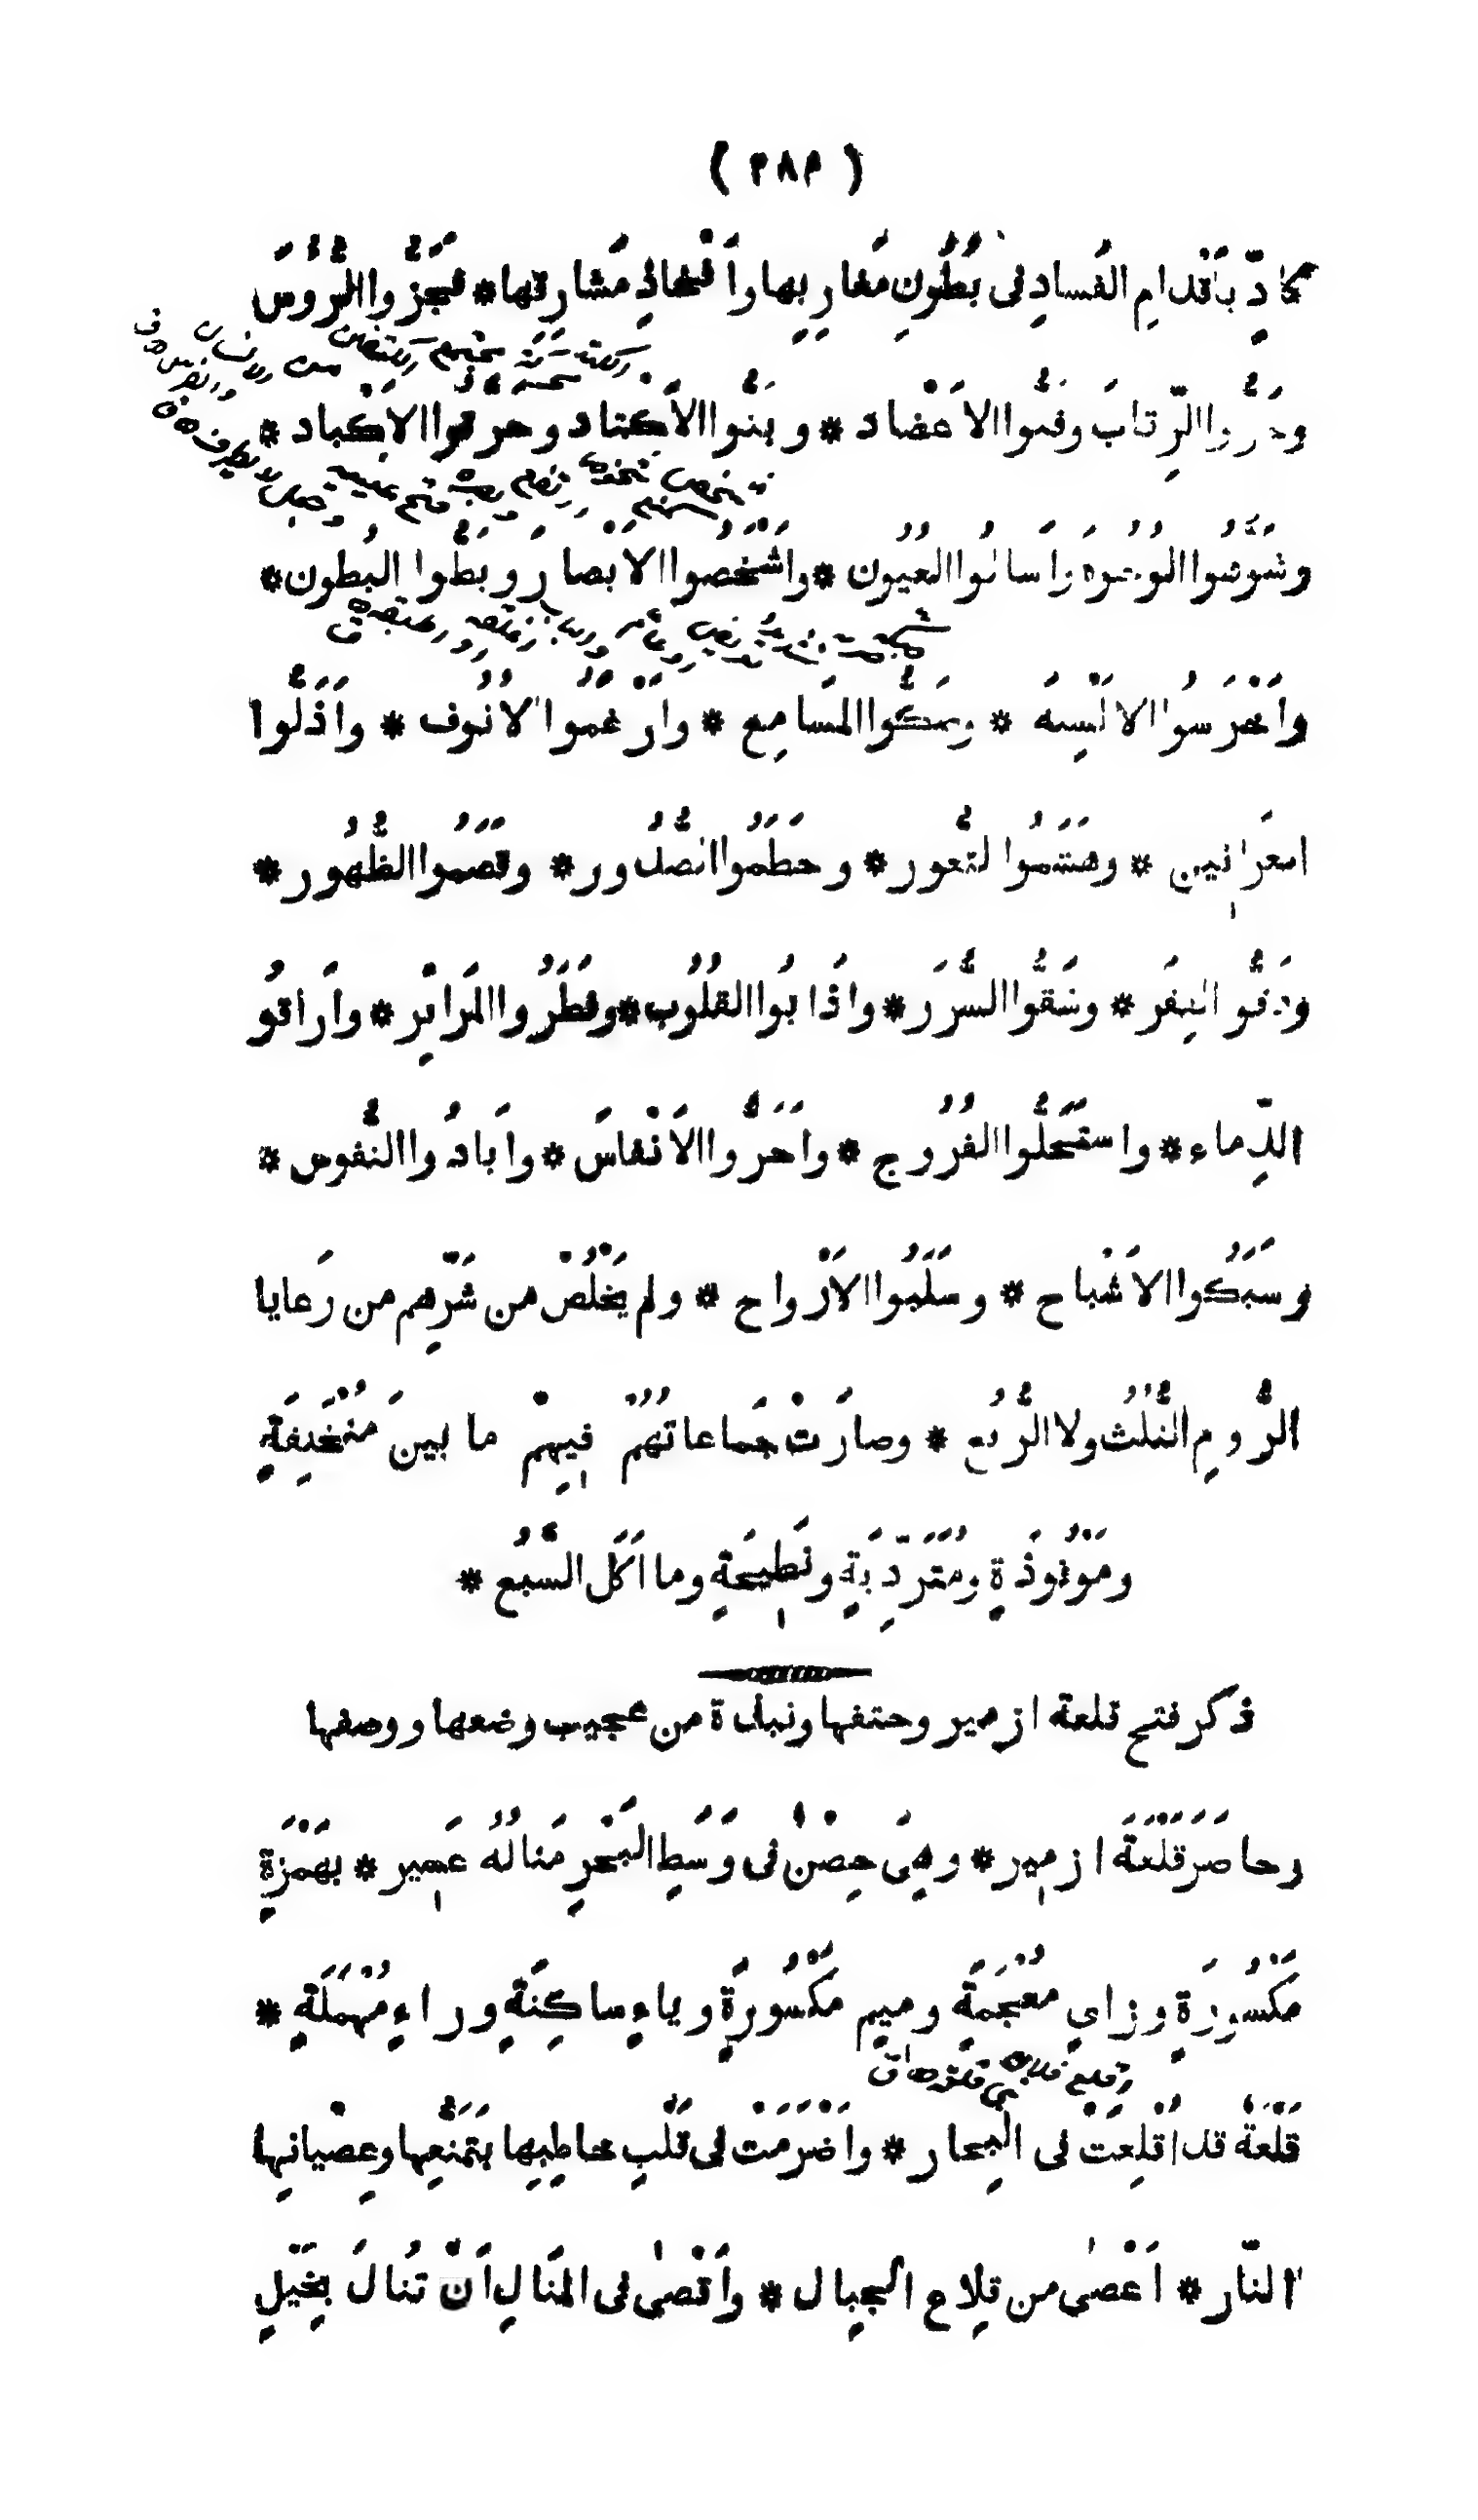 ( ٢٨٢ )
كادّ بأَقدامِ الفَسادِ فى بُطُونِ مَغارِبِها وأَفْخاذِ مَشارِقها * فجَزُّوا الرُّؤُسَ
وجَزُّوا الرِّقابَ وفَتُّوا الاَعْضاد * وبَتُّوا الاَكْتاد وحرَّقوا الاَكْباد *
وشَوَّهُوا الوُجُوهَ وأَسالُوا العُيُون * وأَشْخَصُوا الاَبْصارَ وبَطُّوا البُطون *
وأَخْرَسُوا الاَلْسِنَة * وصَكُّوا المَسامِع * وأَرْغَمُوا الاُنُوف * وأَذَلُّوا
العَرانِين * وهَتَمُوا الثُّغور * وحَطَمُوا الصُّدُور * وقَصَمُوا الظُّهُور *
ودَقُّوا الفِقَر * وشَقُّوا السُّرَر * وأَذابُوا القُلُوب * وفَطَرُوا المَرائِر * وأَراقُو
الدِّماء * واستَحَلُّوا الفُرُوج * وأَحَرُّوا الاَنْفاسَ * وأَبادُوا النُّفوس *
وسَبَكُوا الاَشْباح * وسَلَبُوا الاَرْواح * ولم يَخْلُصْ من شَرِّهم من رَعايا
الرُّومِ الثُّلُث ولا الرُّبُع * وصارَتْ جَماعاتُهُمْ فِيهِمْ ما بينَ مُنْخَنِقَةٍ
ومَوْقُوذَةٍ ومُتَرَدِّيَةٍ ونَطِيحَةٍ وما اَكَل السَّبُع *
ذكر فتح قلعة ازمير وحتفها ونبذة من عجيب وضعها ووصفها
وحاصَرَ قَلْعَةَ ازمِير * وهِىَ حِصْنٌ فى وَسَطِ البَحْرِ مَنالُهُ عَسِير * بهَمْزَةٍ
مَكْسُورَةٍ وزاىٍ مُعْجَمَةٍ وميمٍ مَكْسُورَةٍ وياءٍ ساكِنَةٍ وراءٍ مُهْمَلَةٍ *
قَلْعَةٌ قد اُقْلِعَتْ فى البِحار * وأَضْرَمَتْ فى قَلْبِ خاطِبِها بتَمَنُّعِها وعِصْيانِها
النّار * اَعْصٰى من قِلاعِ الجِبال * وأَقْصٰى فى المَنالِ اَنْ تُنالَ بِخَيْلٍ